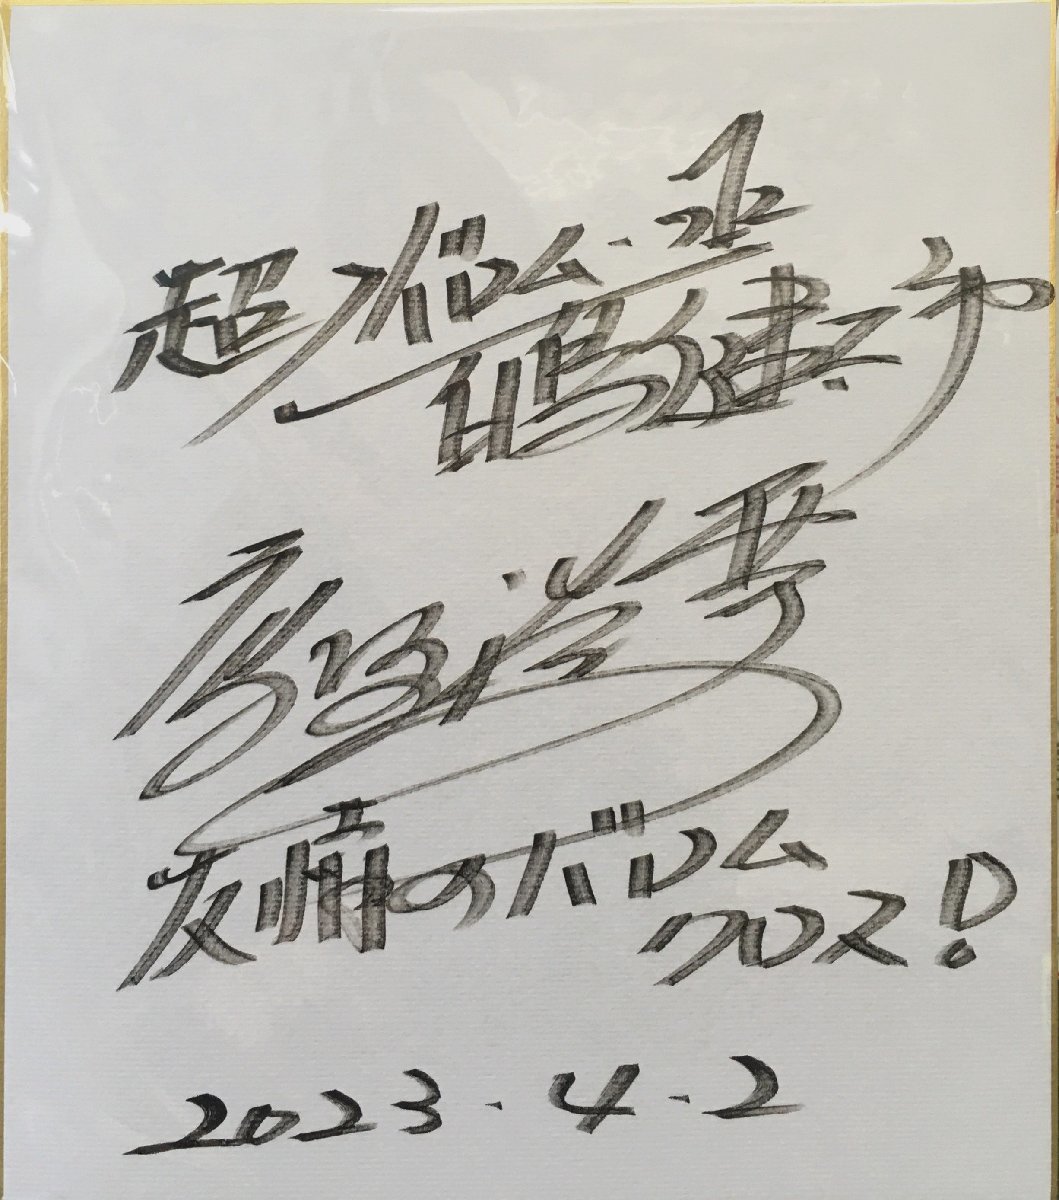 超人バロム・1
白鳥健太郎
高野浩幸
友情のバロム
クロス!
2023.4.2